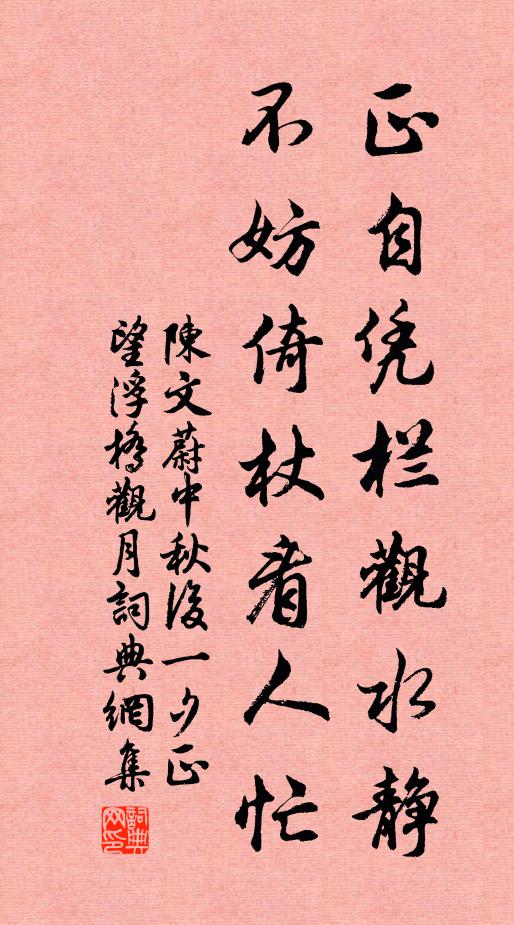 正自凭栏觀水静
不妨倚杖看人忙
陳文蔚中秋後一夕正
望浮橋觀月詞典網集
詞典网印